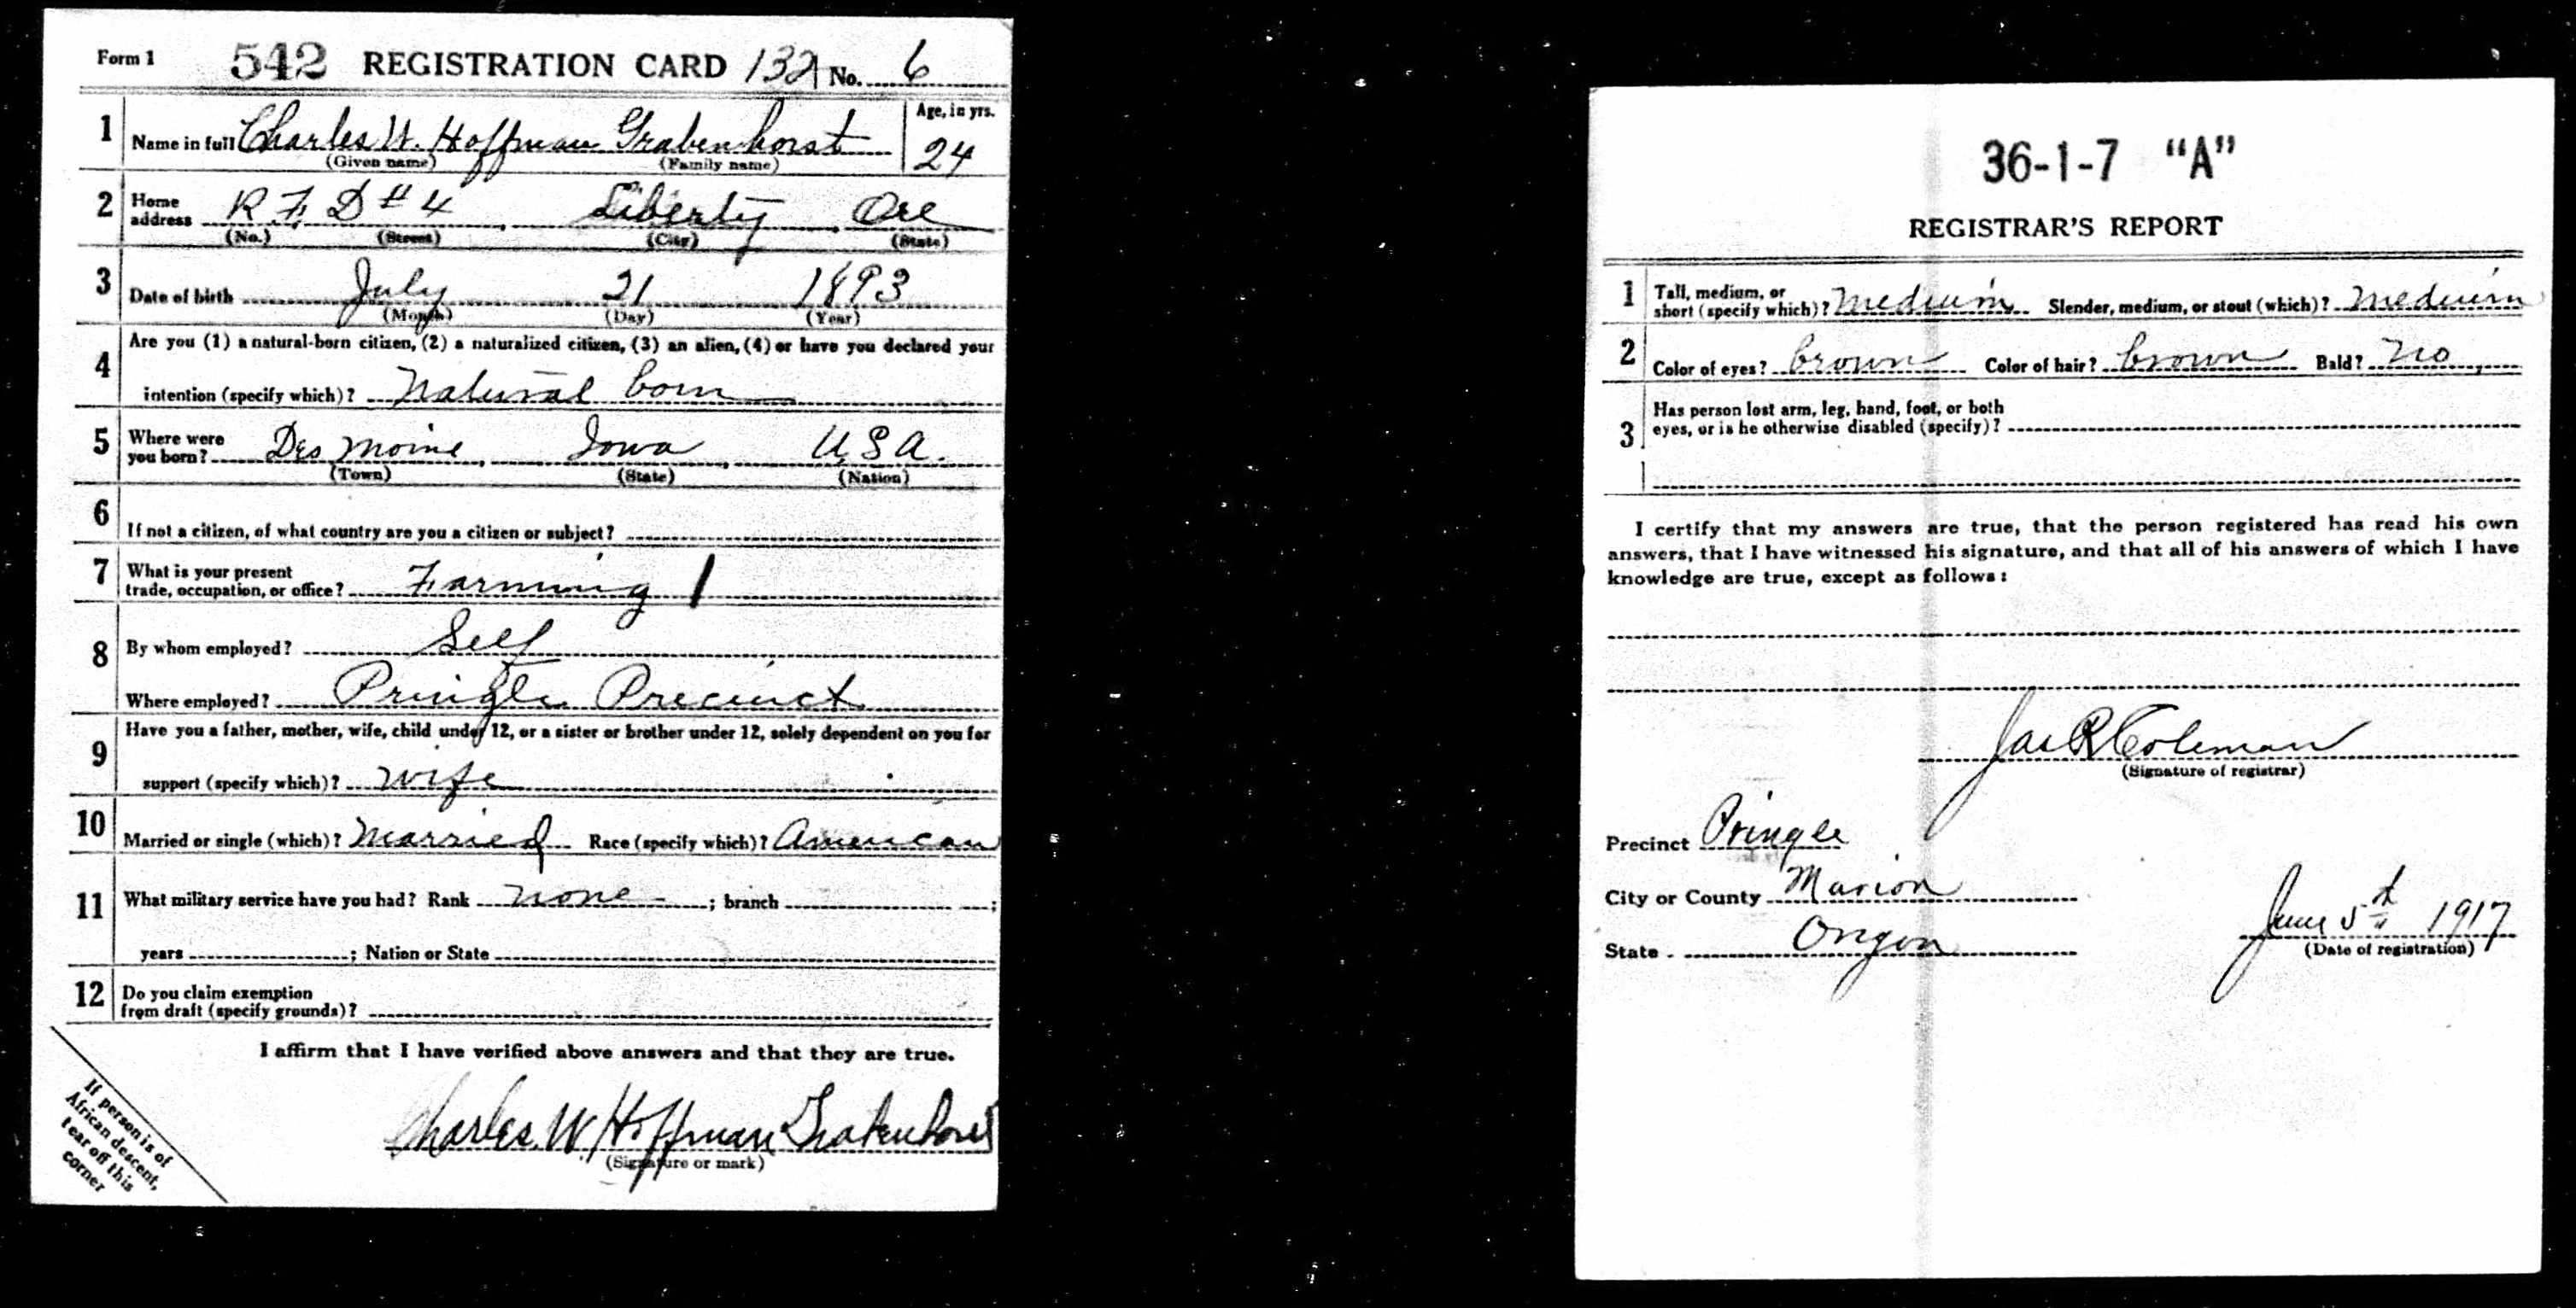 Form 1 542 REGISTRATION CARD 132 No. 6
1 Name in full Charles W. Hoffman Grabenhorst Age, in yrs. 24
(Given name) (Family name)
2 Home address R.F.D #4 Liberty Ore
(No.) (Street) (City) (State)
3 Date of birth July 21 1893
(Month) (Day) (Year)
4 Are you (1) a natural-born citizen, (2) a naturalized citizen, (3) an alien, (4) or have you declared your
intention (specify which)? Natural born
5 Where were you born? Des Moine Iowa U.S.A.
(Town) (State) (Nation)
6 If not a citizen, of what country are you a citizen or subject?
7 What is your present
trade, occupation, or office? Farming 1
8 By whom employed? Self
Where employed? Pringle Precinct
9 Have you a father, mother, wife, child under 12, or a sister or brother under 12, solely dependent on you for
support (specify which)? wife
10 Married or single (which)? Married Race (specify which)? American
11 What military service have you had? Rank none ; branch ;
years ; Nation or State
12 Do you claim exemption
from draft (specify grounds)?
I affirm that I have verified above answers and that they are true.
Charles. W. Hoffman Grabenhorst
(Signature or mark)
If person is of
African descent,
tear off this
corner
36-1-7 "A"
REGISTRAR'S REPORT
1 Tall, medium, or
short (specify which)? Medium Slender, medium, or stout (which)? Medium
2 Color of eyes? brown Color of hair? brown Bald? No
3 Has person lost arm, leg, hand, foot, or both
eyes, or is he otherwise disabled (specify)?
I certify that my answers are true, that the person registered has read his own
answers, that I have witnessed his signature, and that all of his answers of which I have
knowledge are true, except as follows:
Jas R Coleman
(Signature of registrar)
Precinct Pringle
City or County Marion
State Oregon June 5th 1917
(Date of registration)